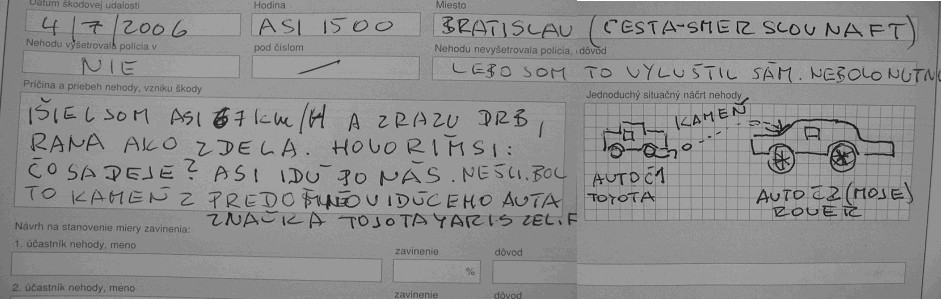 Dátum škodovej udalosti Hodina Miesto
4/7/2006 ASI 1500 BRATISLAV (CESTA-SMER SLOVNAFT)
Nehodu vyšetrovala polícia v pod číslom Nehodu nevyšetrovala polícia, dôvod
NIE LEBO SOM TO VYLUŠTIL SÁM. NEBOLO NUTNO
Príčina a priebeh nehody, vzniku škody Jednoduchý situačný náčrt nehody
IŠIEL SOM ASI 67 KM/H A ZRAZU DRB,
RANA AKO Z DELA. HOVORÍM SI:
ČO SA DEJE? ASI IDÚ PO NÁS. NEŠLI. BOL
TO KAMEŇ Z PREDO IDÚCEHO AUTA
ZNAČKA TOJOTA YARIS ZELIF
KAMEŇ
AUTO Č1
TOYOTA
AUTO Č2 (MOJE)
ROVER
Návrh na stanovenie miery zavinenia:
1. účastník nehody, meno zavinenie dôvod
%
2. účastník nehody, meno zavinenie dôvod